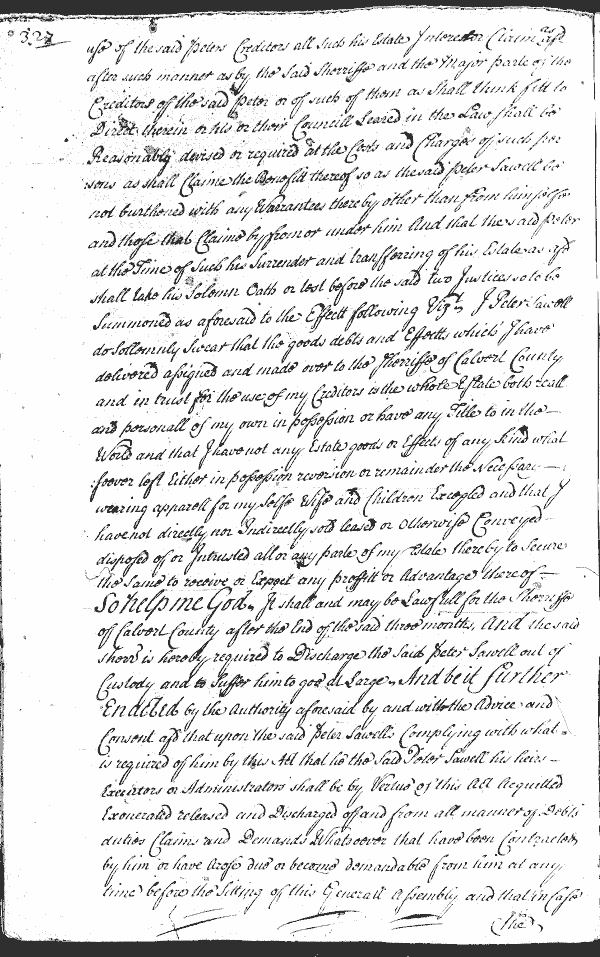 327
use of the said Peters Creditors all such his Estate Interest or Claim afd
after such manner as by the Said Sherriffe and the Major parte of the
Creditors of the said Peter or of such of them as Shall think fitt to
Direct therein or his or their Councill Leared in the Law shall be
Reasonably devised or required at the Costs and Charges of such per
sons as shall Claime the Benefitt thereof so as the said Peter Sawell be
not burthened with any Warrantees thereby other than from himselfe
and those that Claime by from or under him And that the said Peter
at the Time of Such his Surrender and transferring of his Estate as afd
shall take his Solemn Oath or test before the said two Justices so to be
Summoned as aforesaid to the Effect following Vizt. I Peter Sawell
do Sollemnly Swear that the goods debts and Effects which I have
delivered assigned and made over to the Sherriffe of Calvert County
and in trust for the use of my Creditors is the whole Estate both reall
and personall of my own in possession or have any Title to in the
World and that I have not any Estate goods or Effects of any kind what
soever left Either in possession reversion or remainder the Necessary
wearing apparell for my Selfe Wife and Children Excepted and that I
have not directly nor Indirectly sold leased or Otherwise Conveyed
disposed of or Intrusted all or any parte of my Estate thereby to Secure
the Same to receive or Expect any proffitt or Advantage thereof
So help me God. It shall and may be Lawfull for the Sherriffe
of Calvert County after the End of the said three months, And the said
Sherr is hereby required to Discharge the Said Peter Sawell out of
Custody and to Suffer him to goe at Large. And be it further
Enacted by the Authority aforesaid by and with the Advice and
Consent afd that upon the said Peter Sawells Complying with what
is required of him by this Act that he the Said Peter Sawell his heirs
Executors or Administrators shall be by Vertue of this Act Acquitted
Exonerated released and Discharged of and from all manner of Debts
duties Claims and Demands Whatsoever that have been Contracted
by him or have Arose due or become demandable from him at any
time before the Sitting of this Generall Assembly and that in Case
(The)